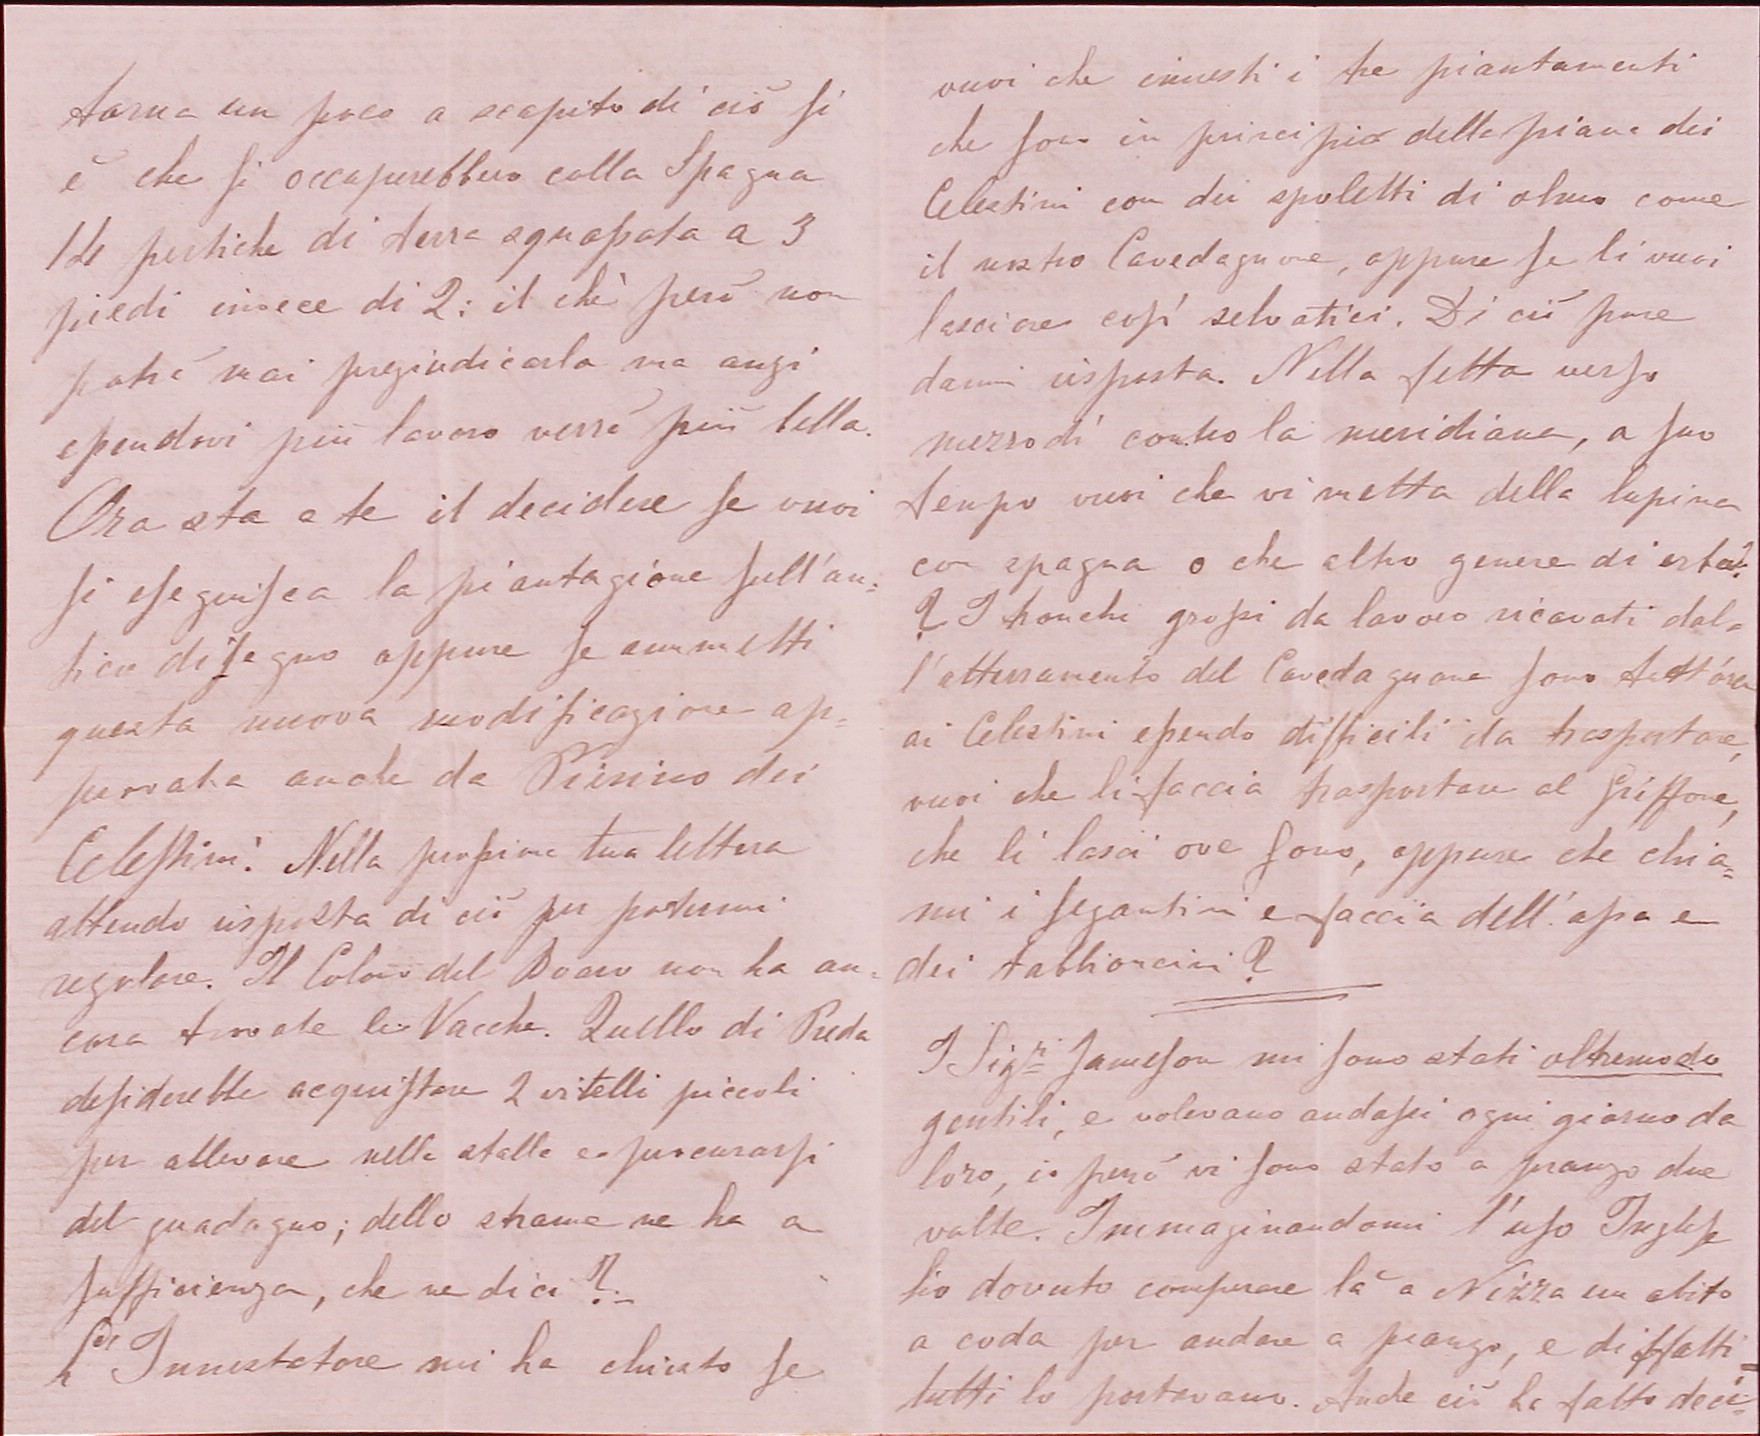 torna un poco a scapito di ciò si
è che si occuperebbero colla Spagna
14 pertiche di terra squassata a 3
piedi invece di 2: il chè però non
potrà mai pregiudicarla ma anzi
essendovi più lavoro verrà più bella.
Ora sta a te il decidere se vuoi
si eseguisca la piantagione sull'an=
tico disegno oppure se ammetti
questa nuova modificazione ap=
provata anche da Pierino dei
Celestini. Nella prossima tua lettera
attendo risposta di ciò per potermi
regolare. Il Colono del Boaro non ha an=
cora trovate le Vacche. Quello di Preda
desiderebbe acquistare 2 vitelli piccoli
per allevare nella stalla e procurarsi
del guadagno; dello strame ne ha a
sufficienza, che ne dici?
L'Innestatore mi ha chiesto se
vuoi che innesti i tre piantamenti
che sono in principio della piana dei
Celestini con dei spoletti di olmo come
il nostro Cavedagnone, oppure se li vuoi
lasciare così selvatici. Di ciò pure
dammi risposta. Nella fetta verso
mezzodì contro la meridiana, a suo
tempo vuoi che vi metta della lupina
con spagna o che altro genere di erba?
? I tronchi grossi da lavoro ricavati dal=
l'atterramento del Cavedagnone sono tutt'ora
ai Celestini essendo difficili da trasportare,
vuoi che li faccia trasportare al Griffone,
che li lasci ove sono, oppure che chia=
mi i segantini e faccia dell'assa e
dei tabbioncini?
I Sigri Jameson mi sono stati oltremodo
gentili, e volevano andassi ogni giorno da
loro, io però vi sono stato a pranzo due
volte. Immaginandomi l'uso Inglese
ho dovuto comperare là a Nizza un abito
a coda per andare a pranzo, e diffatti
tutti lo portavano. Anche ciò ha fatto deci=